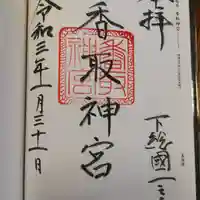 奉拝
下総國一之宮
香取神宮
令和三年一月三十一日